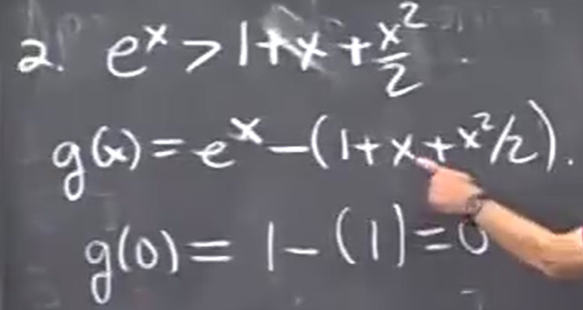 2. e^x > 1+x+x²/2
g(x) = e^x - (1+x+x²/2).
g(0) = 1 - (1) = 0